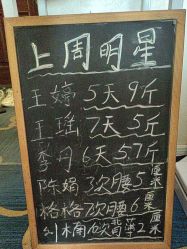 上周明星
王婷 5天9斤
王瑶 7天5斤
李丹 6天5.7斤
陈娟 3次腰5厘米
格格 7次腰6厘米
刘楠 6次背薄2厘米